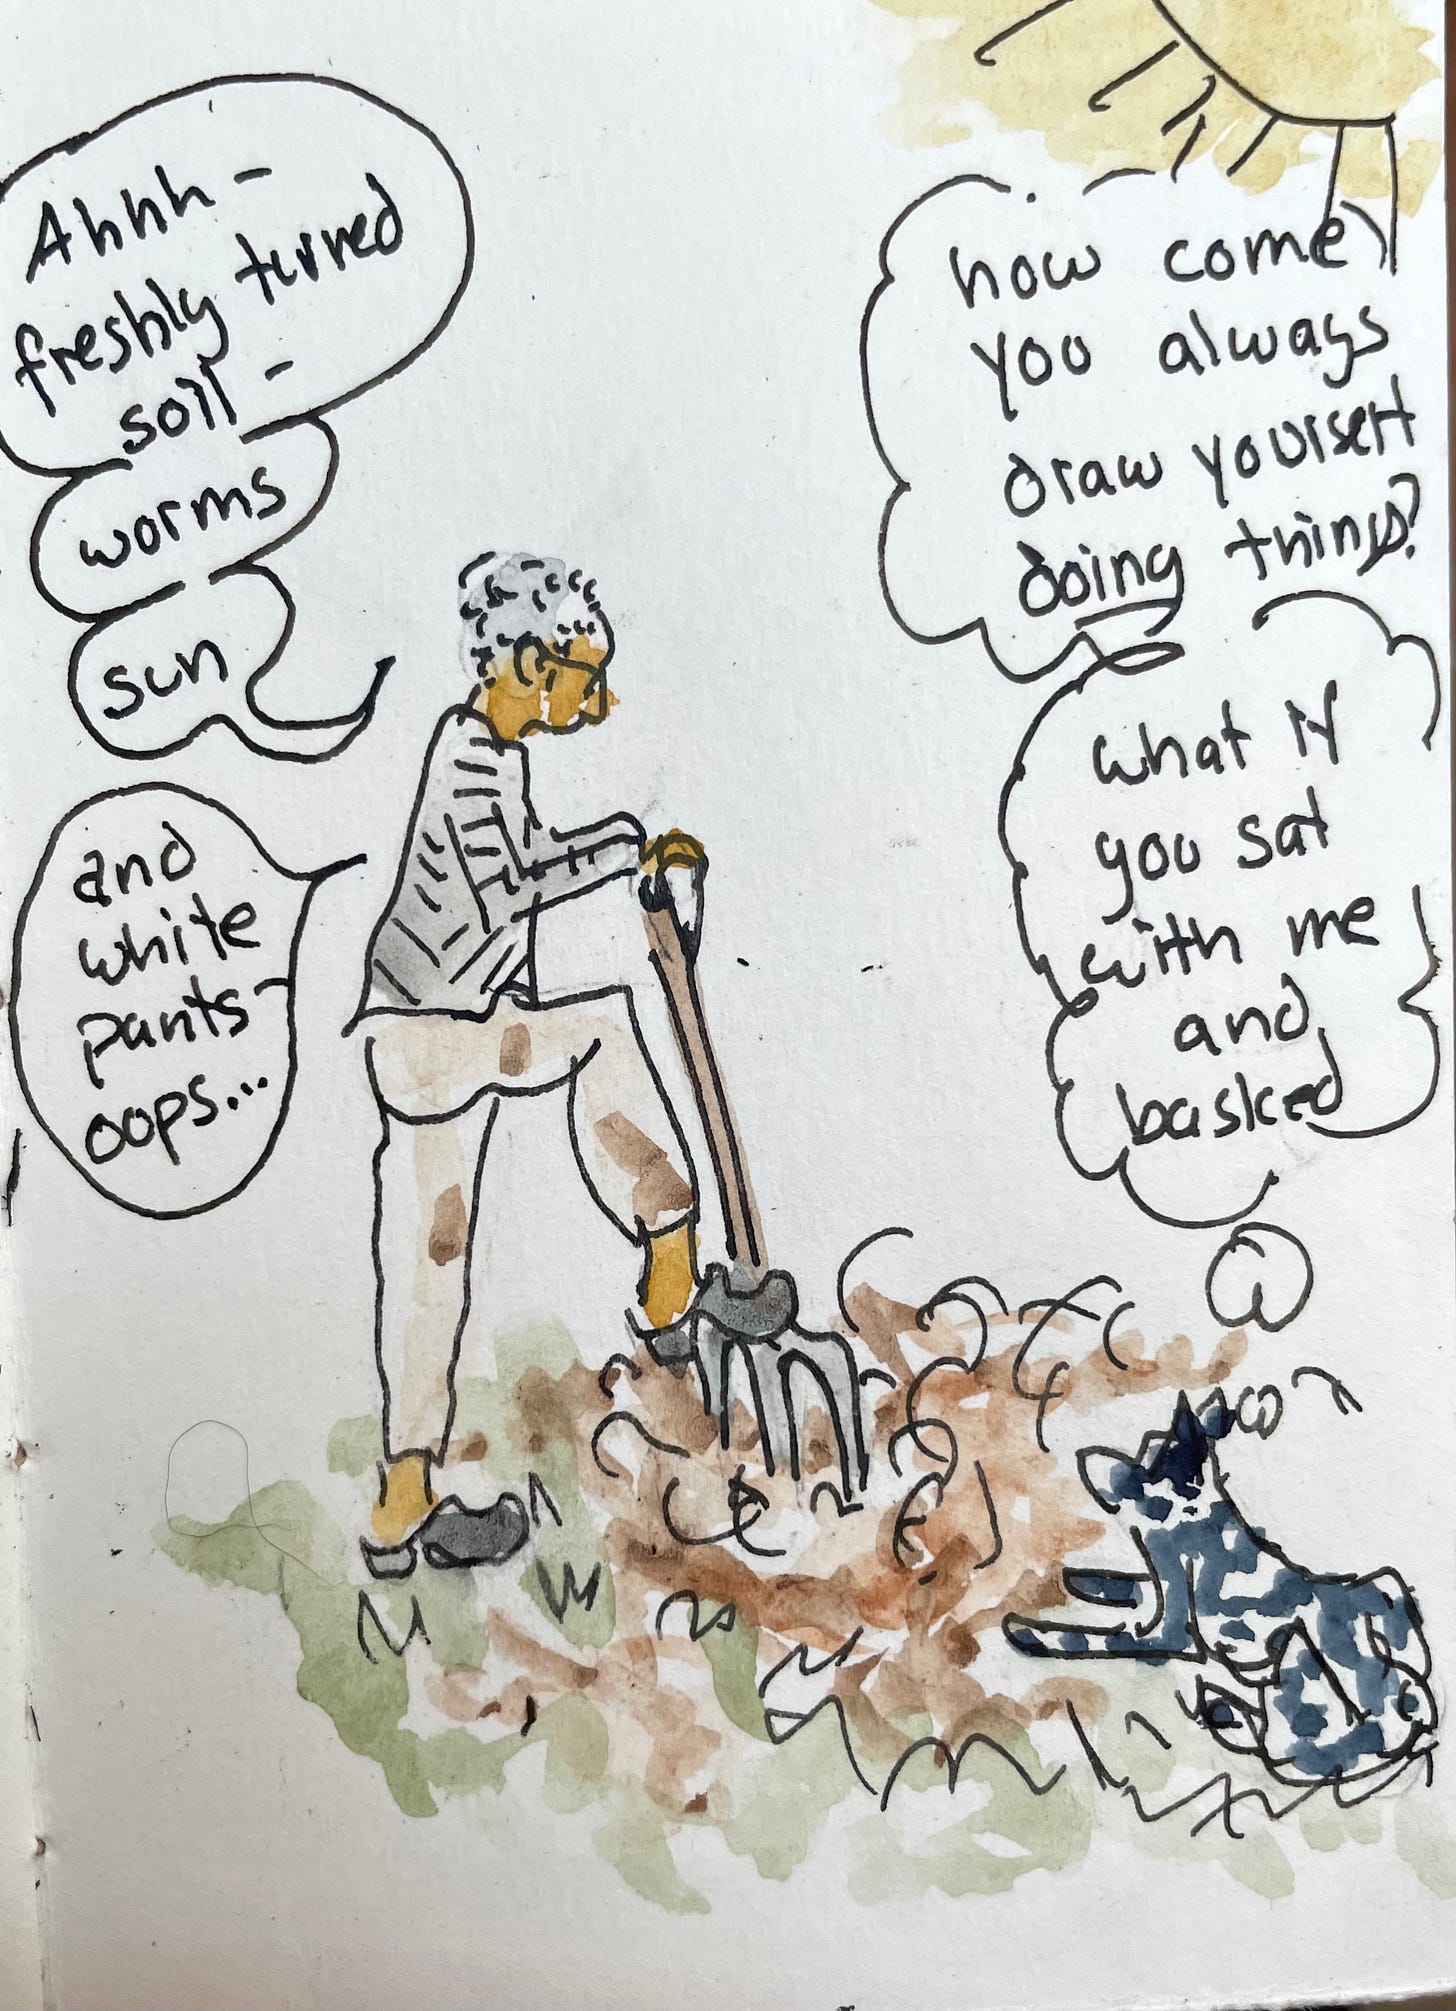 Ahhh –
freshly turned
soil –
worms
sun
and
white
pants –
oops...
how come
you always
draw yourself
doing things?
what if
you sat
with me
and
basked